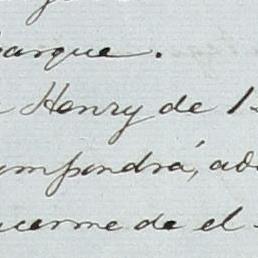 barque.
Henry de 1
ompondrá, ad
ucerme de el